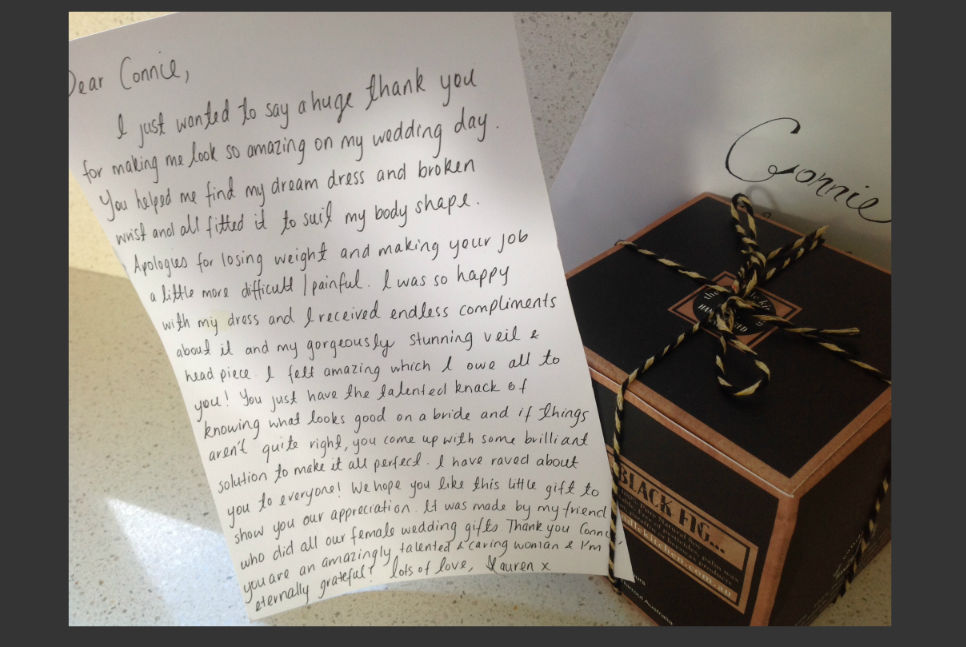 Dear Connie,
I just wanted to say a huge thank you
for making me look so amazing on my wedding day.
You helped me find my dream dress and broken
wrist and all fitted it to suit my body shape.
Apologies for losing weight and making your job
a little more difficult / painful. I was so happy
with my dress and I received endless compliments
about it and my gorgeously stunning veil &
head piece. I felt amazing which I owe all to
you! You just have the talented knack of
knowing what looks good on a bride and if things
aren't quite right, you come up with some brilliant
solution to make it all perfect. I have raved about
you to everyone! We hope you like this little gift to
show you our appreciation. It was made by my friend
who did all our female wedding gifts. Thank you Conn
you are an amazingly talented & caring woman & I'm
eternally grateful! lots of love, Lauren x
Connie
the
BLACK FIG...
kitchen.com.au
Australia